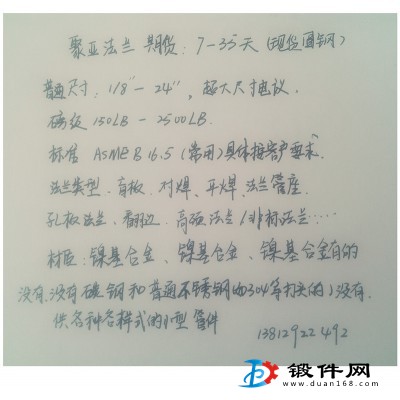 聚亚法兰 期货：7-35天（现货圆钢）
普通尺寸：1/8"－24"，超大尺寸电议.
磅级 150LB－2500LB.
标准 ASME B 16.5（常用）具体按客户要求.
法兰类型、盲板、对焊、平焊、法兰管座、
孔板法兰、翻边、高颈法兰/非标法兰…
材质：镍基合金、镍基合金、镍基合金有的
没有.没有碳钢和普通不锈钢（如304等打头的）没有.
供各种各样式的 型管件
13812922492
DI
锻件网
www.duan168.com